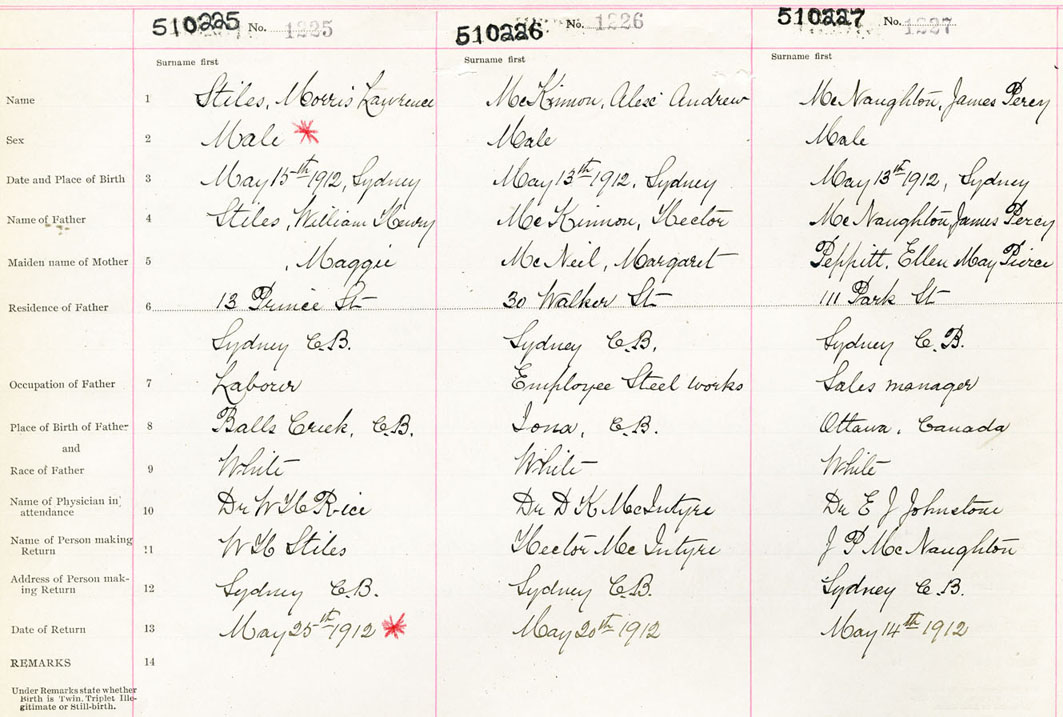 510225 No. 1225 510226 No. 1226 510227 No. 1227
Surname first Surname first Surname first
Name 1 Stiles, Morris Lawrence McKinnon, Alexr Andrew McNaughton, James Percy
Sex 2 Male Male Male
Date and Place of Birth 3 May 15th 1912, Sydney May 13th 1912, Sydney May 13th 1912, Sydney
Name of Father 4 Stiles, William Henry McKinnon, Hector McNaughton James Percy
Maiden name of Mother 5 , Maggie McNeil, Margaret Peppitt, Ellen May Pierce
Residence of Father 6 13 Prince St 30 Walker St 111 Park St
Sydney C.B. Sydney C.B. Sydney C.B.
Occupation of Father 7 Laborer Employee Steel works Sales manager
Place of Birth of Father 8 Balls Creek, C.B. Iona, C.B. Ottawa, Canada
and
Race of Father 9 White White White
Name of Physician in
attendance 10 Dr W H Rice Dr D K McIntyre Dr E J Johnstone
Name of Person making
Return 11 W H Stiles Hector McIntyre J P McNaughton
Address of Person mak-
ing Return 12 Sydney C.B. Sydney C.B. Sydney C.B.
Date of Return 13 May 25th 1912 May 20th 1912 May 14th 1912
REMARKS 14
Under Remarks state whether
Birth is Twin, Triplet Ille-
gitimate or Still-birth.